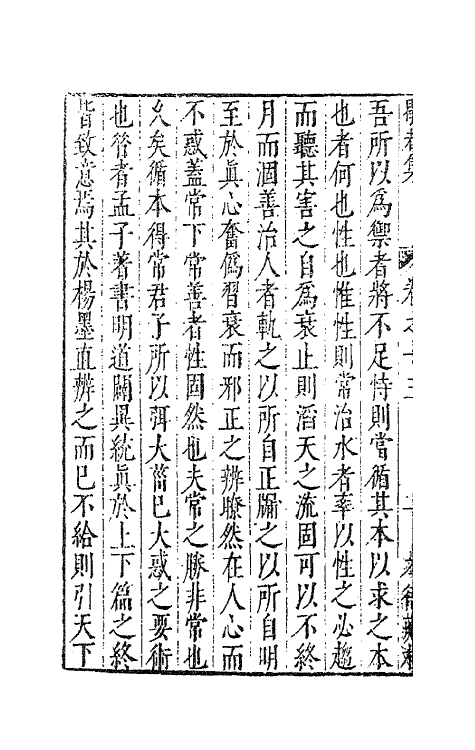 吾所以為禦者將不足恃則當循其本以求之本
也者何也性也惟性則常治水者率以性之必趨
而聽其害之自為衰止則滔天之流固可以不終
月而涸善治人者軌之以所自正牖之以所自明
至於真心奮偽習衰而邪正之辨瞭然在人心而
不惑蓋常下常善者性固然也夫常之勝非常也
久矣循本得常君子所以弭大菑已大惑之要術
也昝者孟子著書明道闢異統真於上下篇之終
皆致意焉其於楊墨直辨之而已不給則引天下